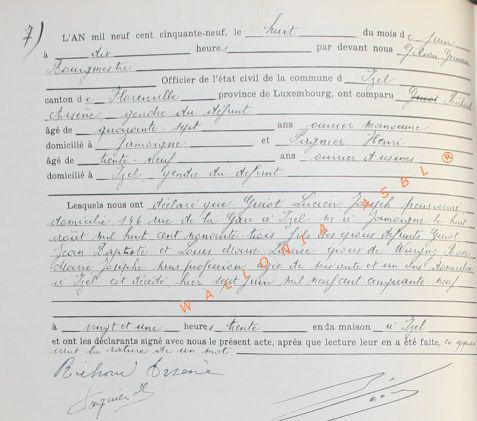 7)
L'AN mil neuf cent cinquante-neuf, le huit du mois de juin
à dix heures par devant nous
Bourgmestre
Officier de l'état civil de la commune d Izel
canton de Florenville province de Luxembourg, ont comparu
Arsène gendre du défunt
âgé de quarante-sept ans ouvrier manoeuvre
domicilié à Jamoigne et Henri
âgé de trente-neuf ans ouvrier d'usines
domicilié à Izel gendre du défunt
Lesquels nous ont déclaré que Guiot Lucien Joseph pensionné
domicilié 146 rue de la Gare à Izel né à Jamoigne le huit
août mil huit cent nonante-trois fils des époux défunts Guiot
Jean Baptiste et Louis Marie Louise époux de
Marie Josèphe sans profession âgée de soixante et un ans domiciliée
à Izel est décédé hier sept juin mil neuf cent cinquante neuf
à vingt et une heures trente en da maison à Izel
et ont les déclarants signé avec nous le présent acte, après que lecture leur en a été faite,
la rature de un mot
Arsène
WALLONIA ASBL ®